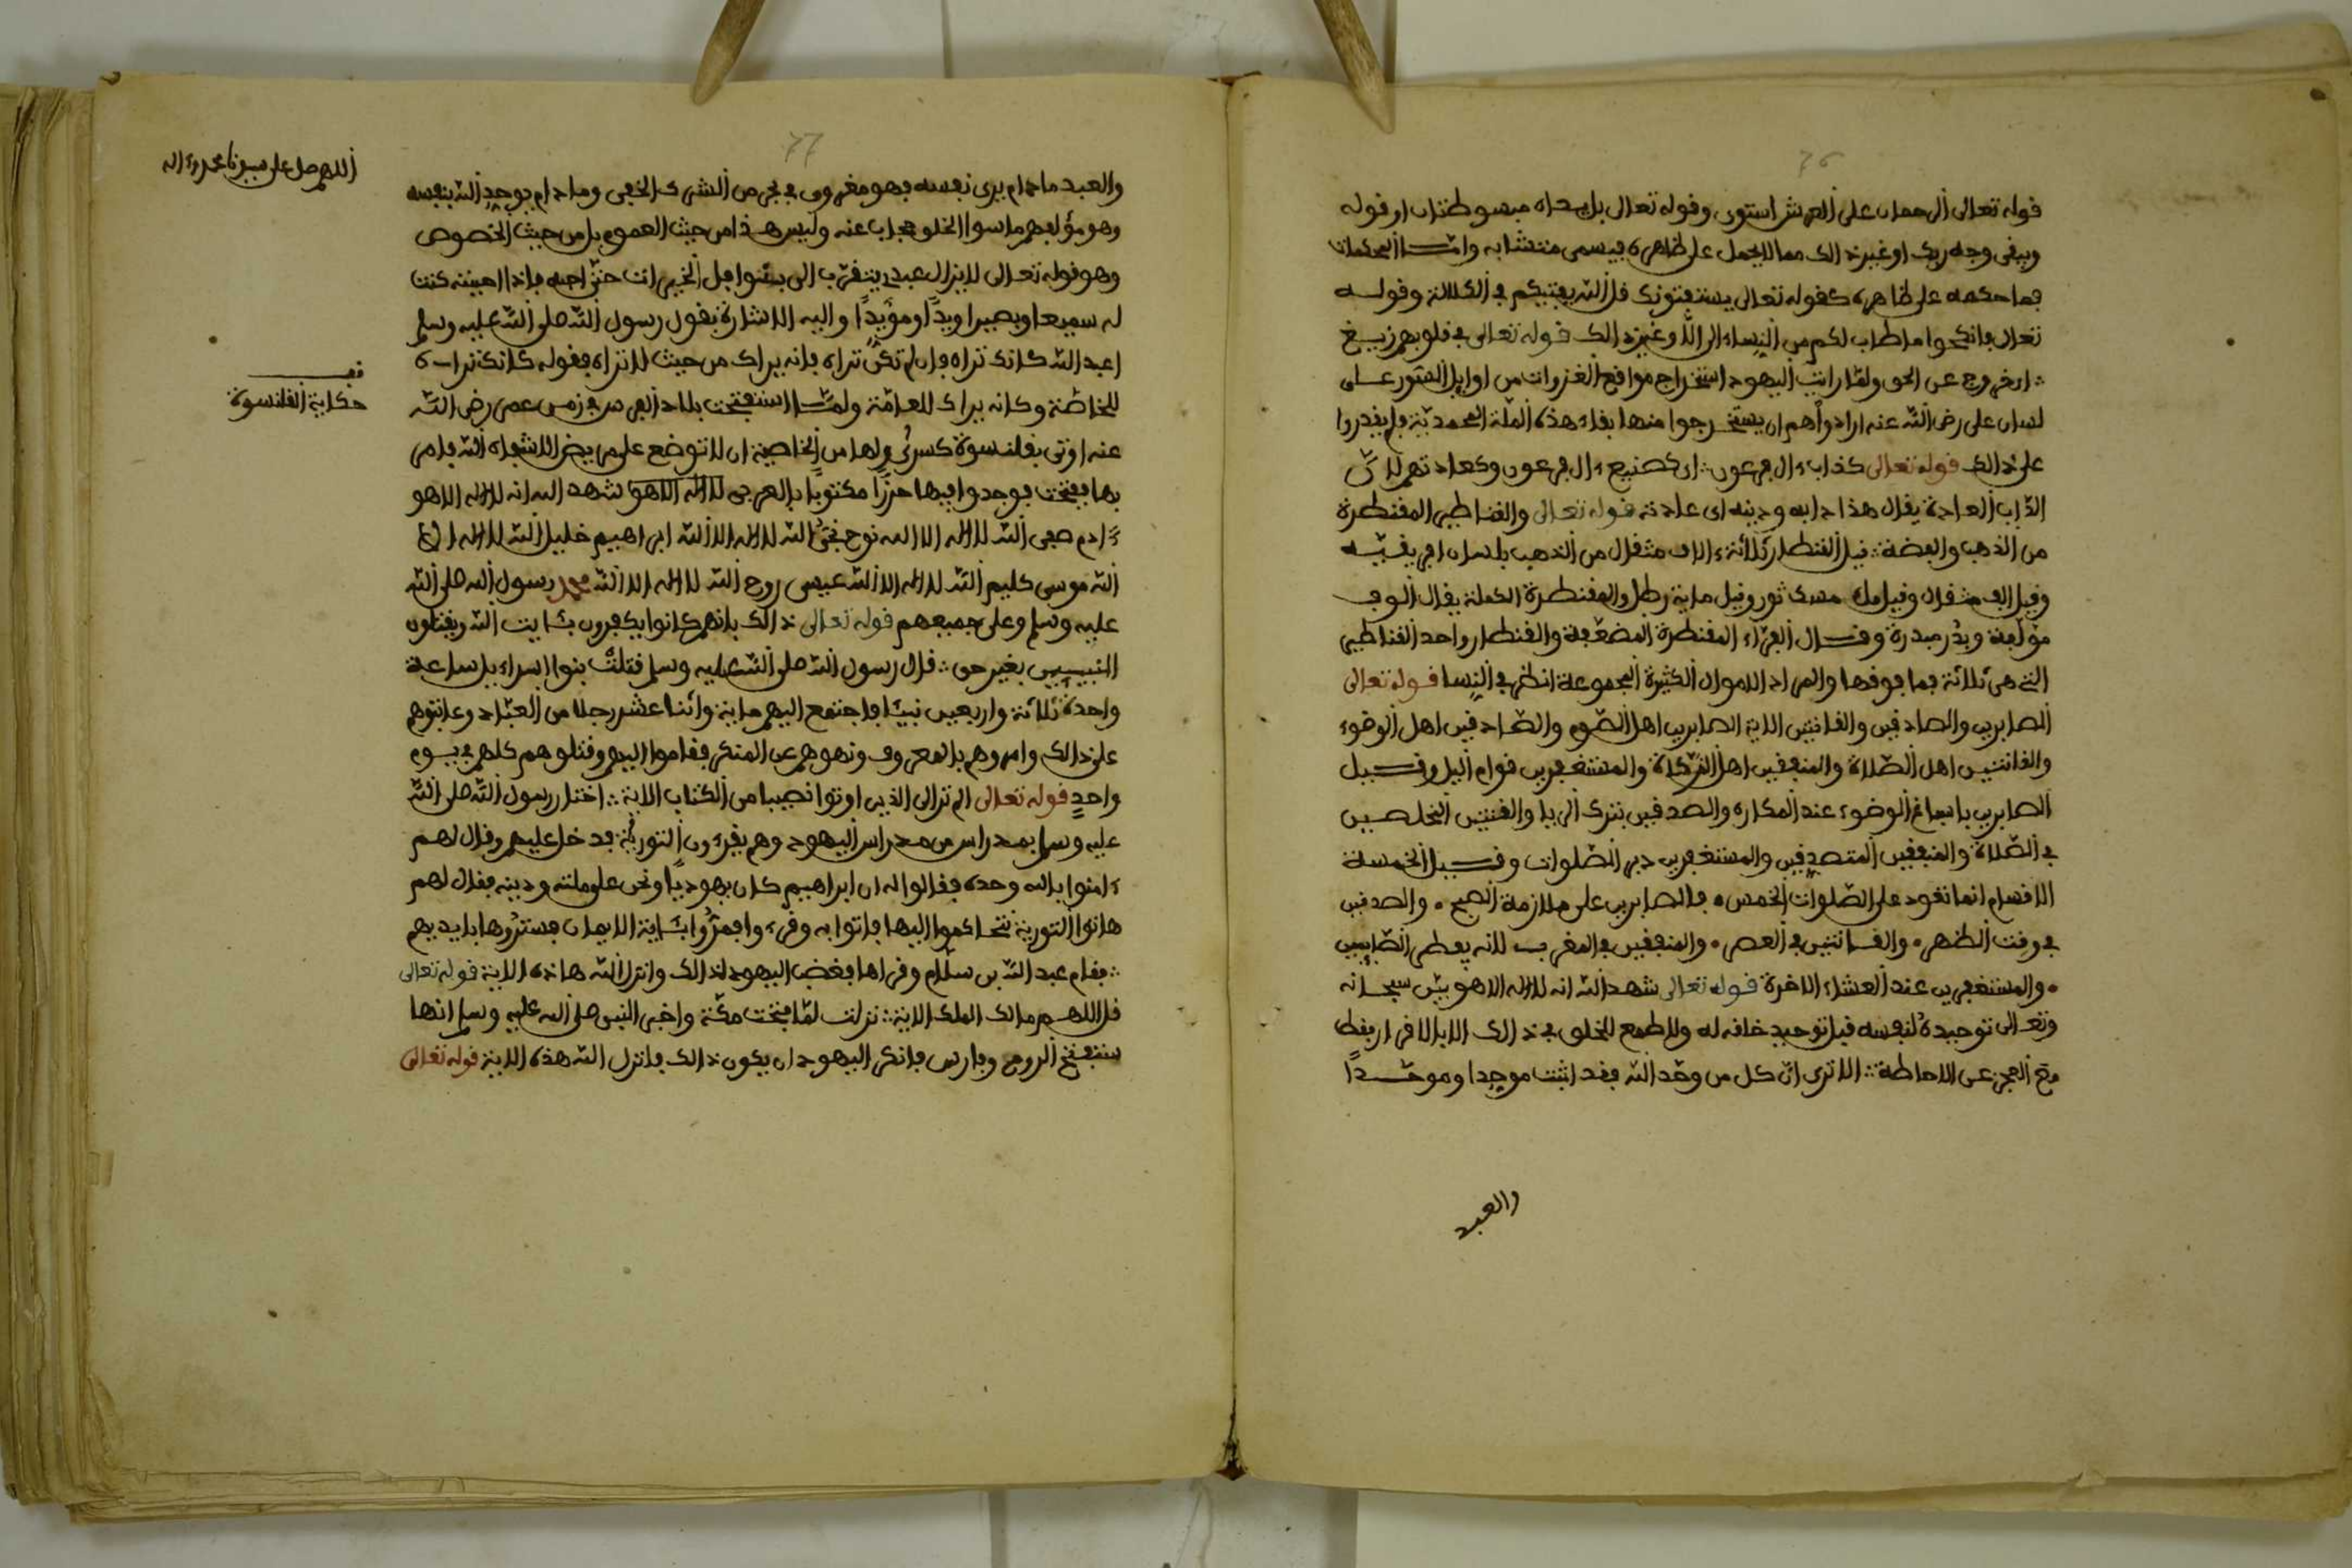 76
قوله تعالى الرحمان على العرش استوى وقوله تعالى بل يداه مبسوطتان او قوله
ويبقى وجه ربك او غير ذالك مما لا يحمل على ظاهره فيسمى متشابه وامّا المحكمات
فما حكمه على ظاهره كقوله تعالى يستفتونك قل الله يفتيكم في الكلالة وقوله
تعالى فانكحوا ما طاب لكم من النساء الى وغير ذالك قوله تعالى في قلوبهم زيغ
اى خروج عن الحق ولمّا رايت اليهود استخراج مواقع الغزوات من اوايل السّور على
لسان على رضى الله عنه ارادوا هم ان يستخرجوا منها بقاء هذه الملة المحمديّة فلم يقدروا
على ذالك قوله تعالى كداب ءال فرعون اى كصنيع ءال فرعون وكعادتهم لانّ
الدّاب العادة يقال هذا دابه ودينه اى عادته قوله تعالى والقناطير المقنطرة
من الذهب والفضة قيل القنطار ثلاثة ءالاف مثقال من الذهب بلسان افريقيّه
وقيل الف مثقال وقيل ملء مسك ثور وقيل ماية رطل والمقنطرة الكملة يقال الوف
مؤلّفة وبدر مبدرة وقال الفرّاء المقنطرة المضعّفة والقنطار واحد القناطير
التي هى ثلاثة فما فوقها والمراد الاموال الكثيرة المجموعة انظر في النسا قوله تعالى
الصابرين والصادقين والقانتين الاية الصابرين اهل الصّوم والصّادقين اهل الوضوء
والقانتين اهل الصّلاة والمنفقين اهل الزكاة والمستغفرين قوام اليل وقيل
الصابرين باسباغ الوضوء عند المكاره والصدقين بترك الريا والقنتين المخلصين
في الصّلاة والمنفقين المتصدقين والمستغفرين دبر الصّلوات وقيل الخمسة
الاقسام انما تعود على الصّلوات الخمس فالصابرين على ملازمة الصبح والصدقين
في وقت الظهر والقانتين في العصر والمنفقين في المغرب لانه يعطى الصّايمين
والمستغفرين عند العشاء الاخرة قوله تعالى شهد الله انه لا اله الا هو بيّن سبحانه
وتعالى توحيده لنفسه قبل توحيد خلقه له ولا طمع للخلق في ذالك الا بالاقرار فقط
مع العجز عن الاحاطة الا ترى انّ كل من وحّد الله فقد اثبت موجدا وموحّدًا
والعبد
77
والعبد ما دام يرى نفسه فهو مغروق في بحر من الشرك الخفى وما دام يوحد الله بنفسه
وهو مؤلف ما سوا الخلق حجاب عنه وليس هذا من حيث العموم بل من حيث الخصوص
وهو قوله تعالى لا يزال عبدى يتقرّب الى بنوافل الخيرات حتّى احبه فاذا احببته كنت
له سميعا وبصيرا ويدًا ومؤيّدًا واليه الاشارة بقول رسول الله صلى الله عليه وسلم
اعبد الله كانك تراه فان لم تكن تراه فانه يراك من حيث لا تراه فقوله كانك تراه
للخاصّة وكانه يراك للعامّة ولمّا استفتحت بلاد الفرس في زمن عمر رضى الله
عنه اوتى بقلنسوة كسرى ولها من الخاصية ان لا توضع على مريض الا شفاه الله فامر
بها ففتحت فوجدوا فيها حرزًا مكتوبًا بالعربي لا اله الا هو شهد الله انه لا اله الا هو
ءادم صفى الله لا اله الا الله نوح نجىّ الله لا اله الا الله ابراهيم خليل الله لا اله الا
الله موسى كليم الله لا اله الا الله عيسى روح الله لا اله الا الله محمد رسول الله صلى الله
عليه وسلم وعلى جميعهم قوله تعالى ذالك بانهم كانوا يكفرون بئايت الله ويقتلون
النبيين بغير حق قال رسول الله صلى الله عليه وسلم قتلت بنوا اسراءيل ساعة
واحدة ثلاثة واربعين نبيّا فاجتمع اليهم ماية واثنا عشر رجلا من العبّاد وعاتبوهم
على ذالك وامروهم بالمعروف ونهوهم عن المنكر فقاموا اليهم وقتلوهم كلهم في يوم
واحدٍ قوله تعالى الم تر الى الذين اوتوا نصيبا من الكتاب الاية اختار رسول الله صلى الله
عليه وسلم بمدراس من مدراس اليهود وهم يقرءون التورية فدخل عليهم وقال لهم
ءامنوا بالله وحده فقالوا له ان ابراهيم كان يهوديًا ونحن على ملته ودينه فقال لهم
هاتوا التورية نتحاكموا اليها فاتوا به وقرء وا فمرّوا بئاية الايمان فستروها بايديهم
فقام عبد الله بن سلام وقراها فغضب اليهود لذالك وانزل الله هاذه الاية قوله تعالى
قل اللهم مالك الملك الاية نزلت لمّا فتحت مكّة واخبر النبى صلى الله عليه وسلم انها
ستفتح الروم وفارس فانكر اليهود ان يكون ذالك فانزل الله هذه الاية قوله تعالى
اللهم صل على سيدنا محمد وءاله
قف
حكاية القلنسوة